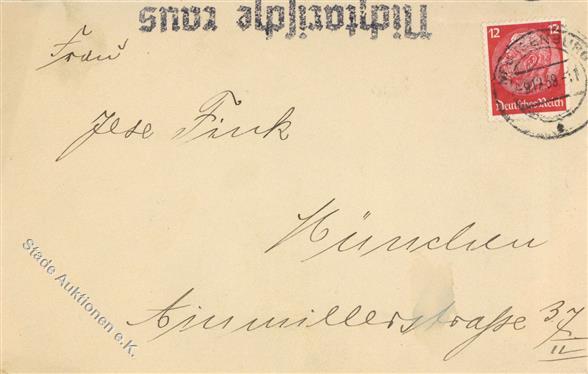 Nichtarische raus
12 12
Deutsches Reich
Frau
Ilse Fink
München
Ainmillerstraße 37/II
Stade Auktionen e.K.